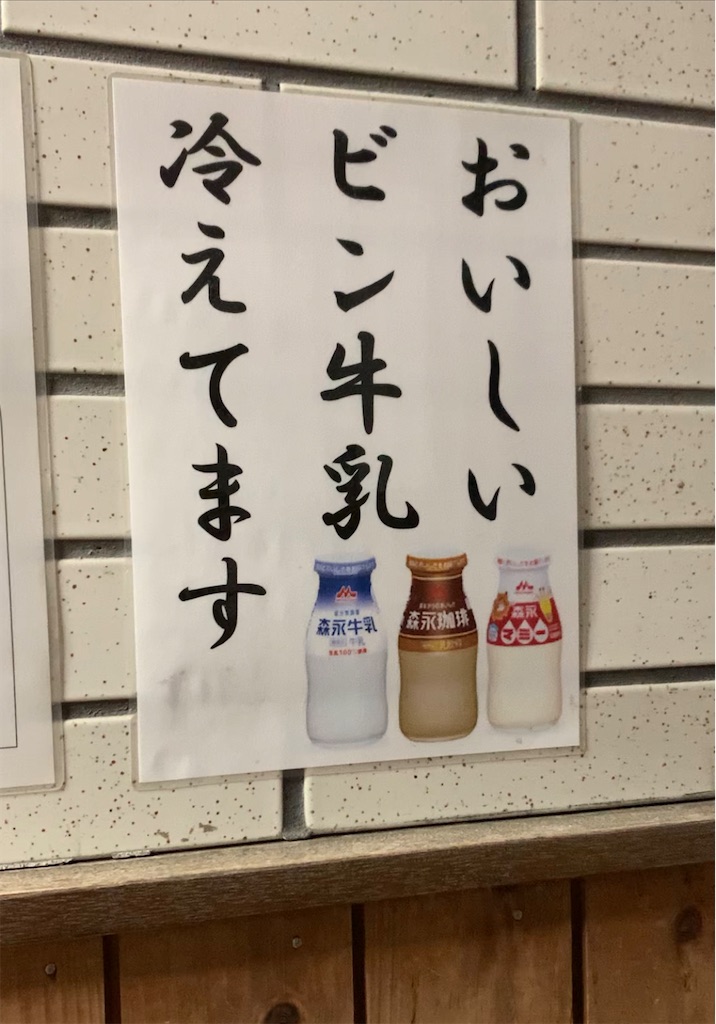 おいしい
ビン牛乳
冷えてます
森永牛乳
牛乳
森永珈琲
森永
マミー